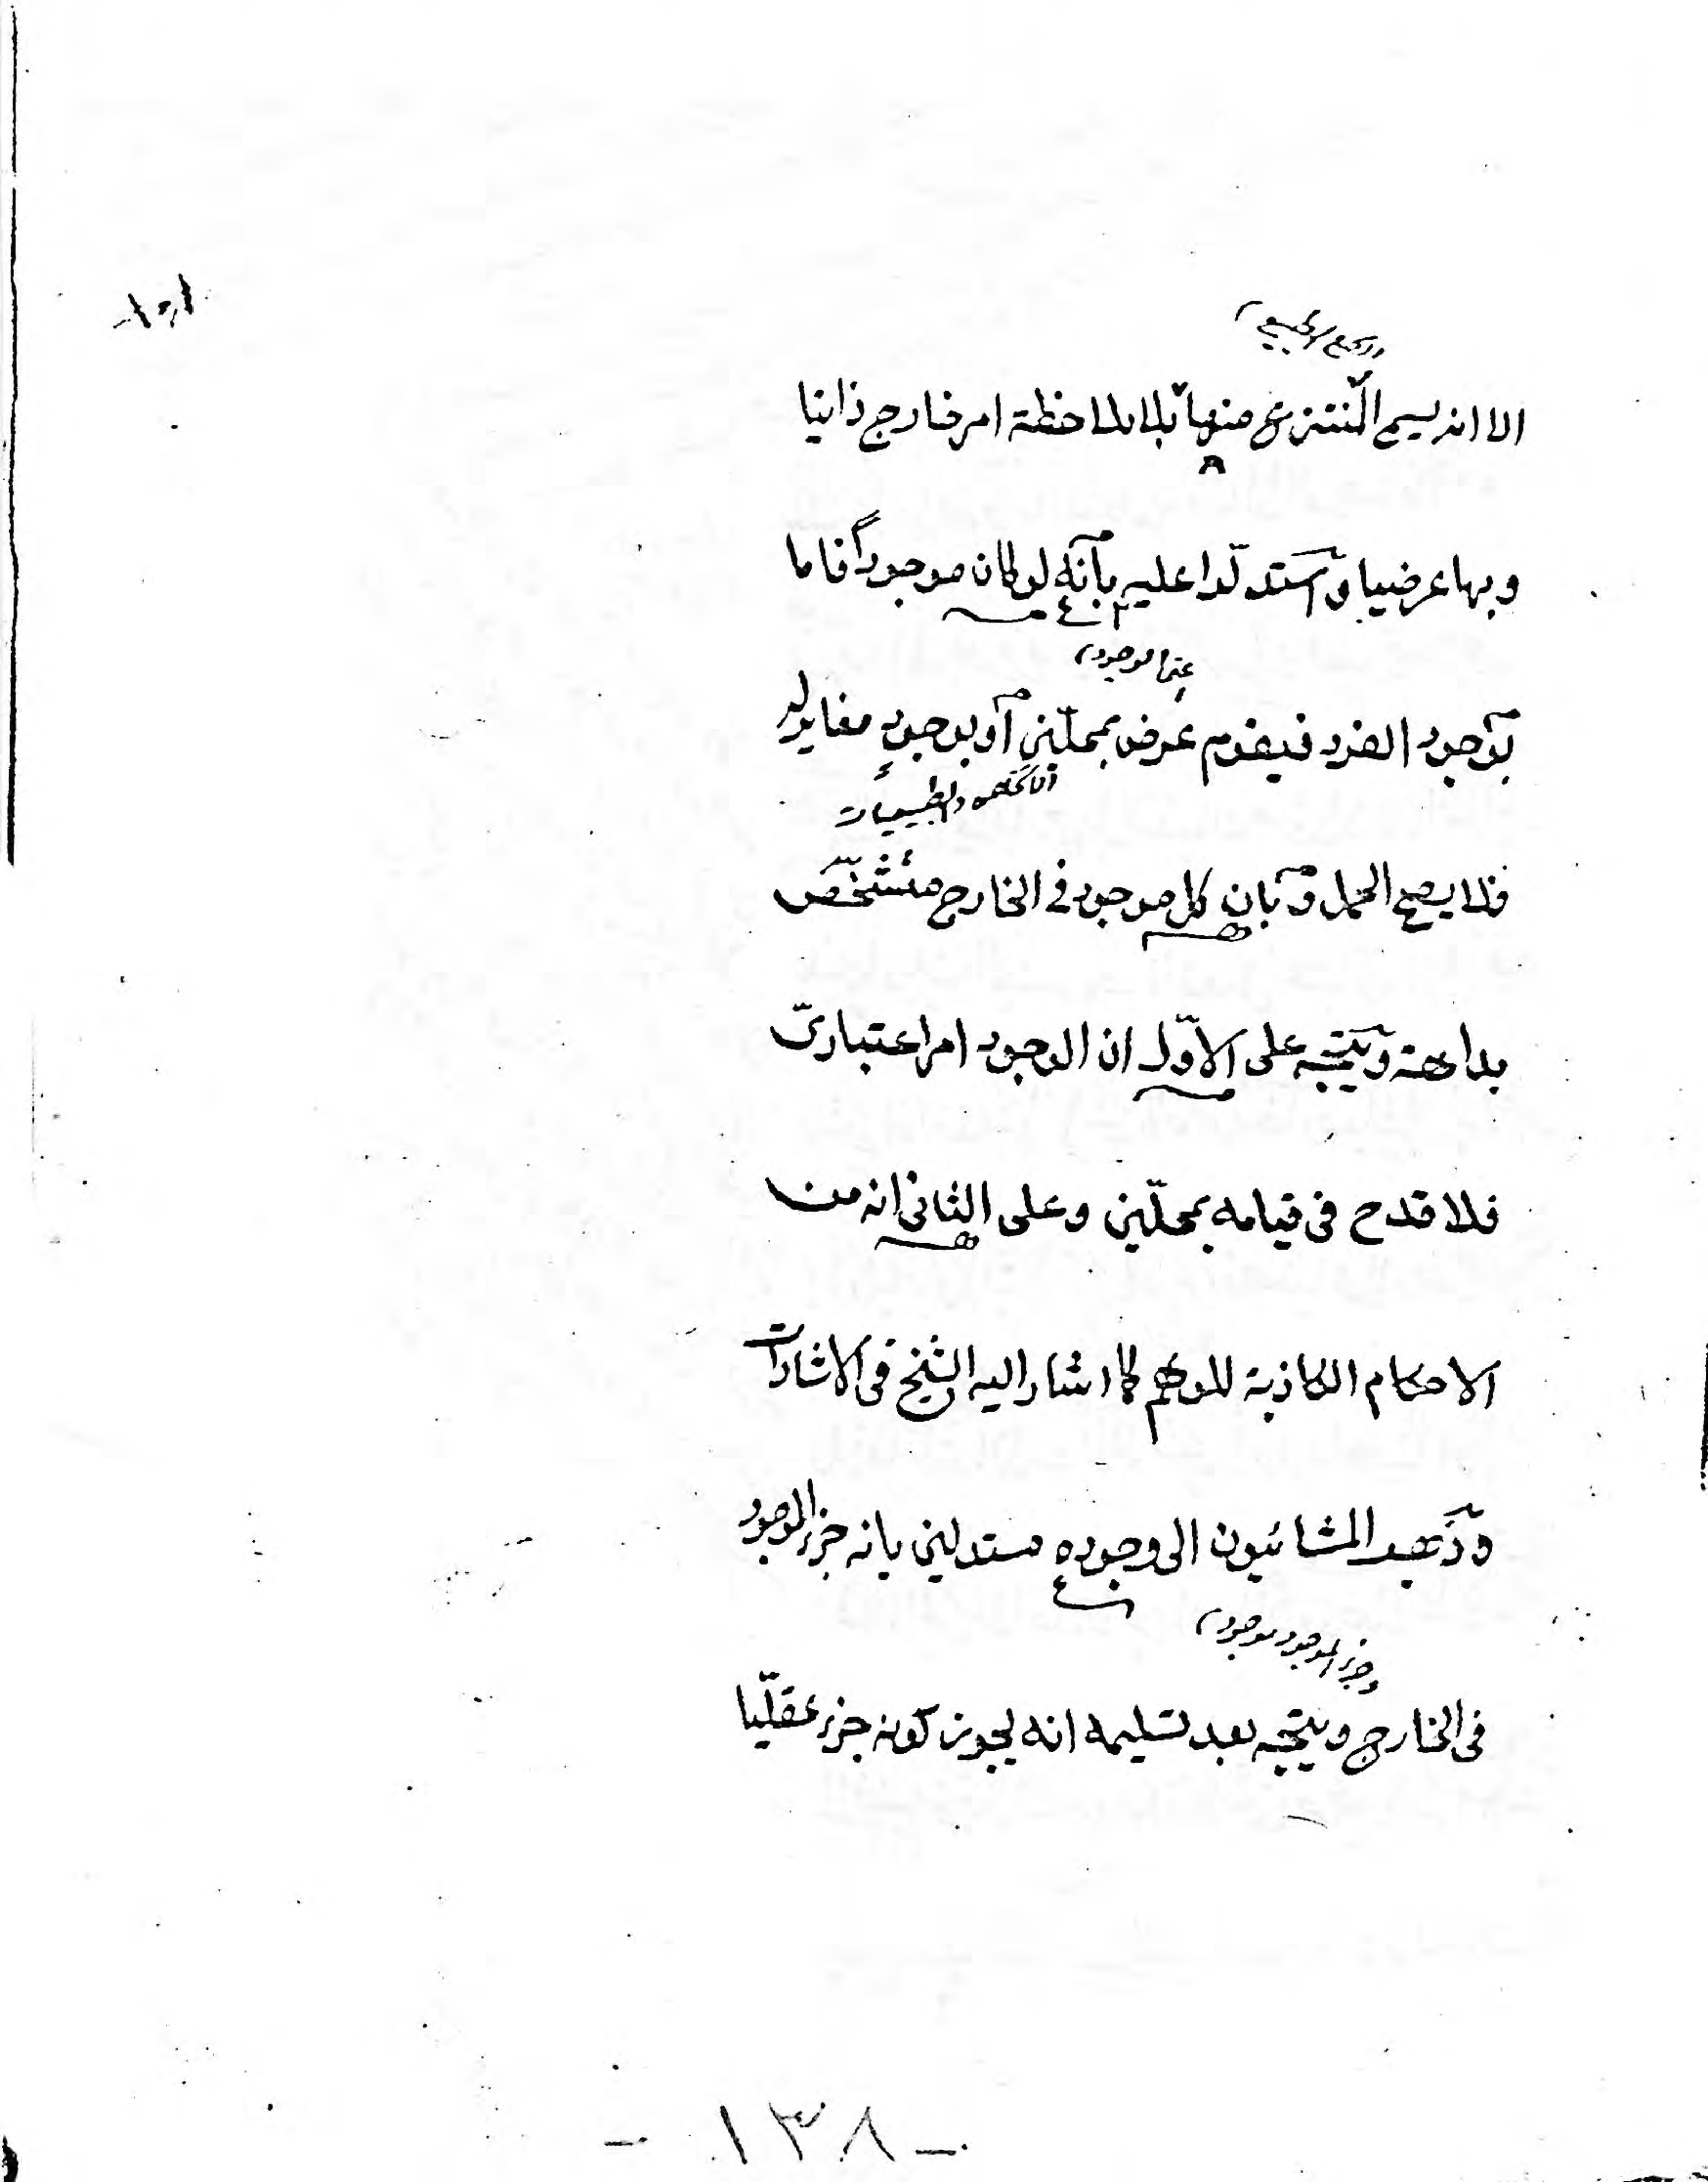 الا انه يسمى المنتزع منها بلا ملاحظة امر خارج ذاتيا
وبها عرضيا واستدلّوا عليه بأنّه لو كان موجوداً فاما
عنها لوجود
بوجود الفرد فيقوم عرض بمحلّين أو بوجودٍ مغاير له
فلا يصح الحمل وبان كل موجود في الخارج متشخّص
بداهة ويتّجه على الاوّل ان الوجود امر اعتباريّ
فلا قدح فى قيامه بمحلّين وعلى الثانى انه من
الاحكام الكاذبة للوهم كما اشار اليه الشيخ فى الاشارات
وذهب المشائيون الى وجوده مستدلين بانه جزء الموجود
وجزء الموجود موجود
فى الخارج ويتّجه بعد تسليمه انه يجوز كونه جزء عقليّا
- ١٣٨ -